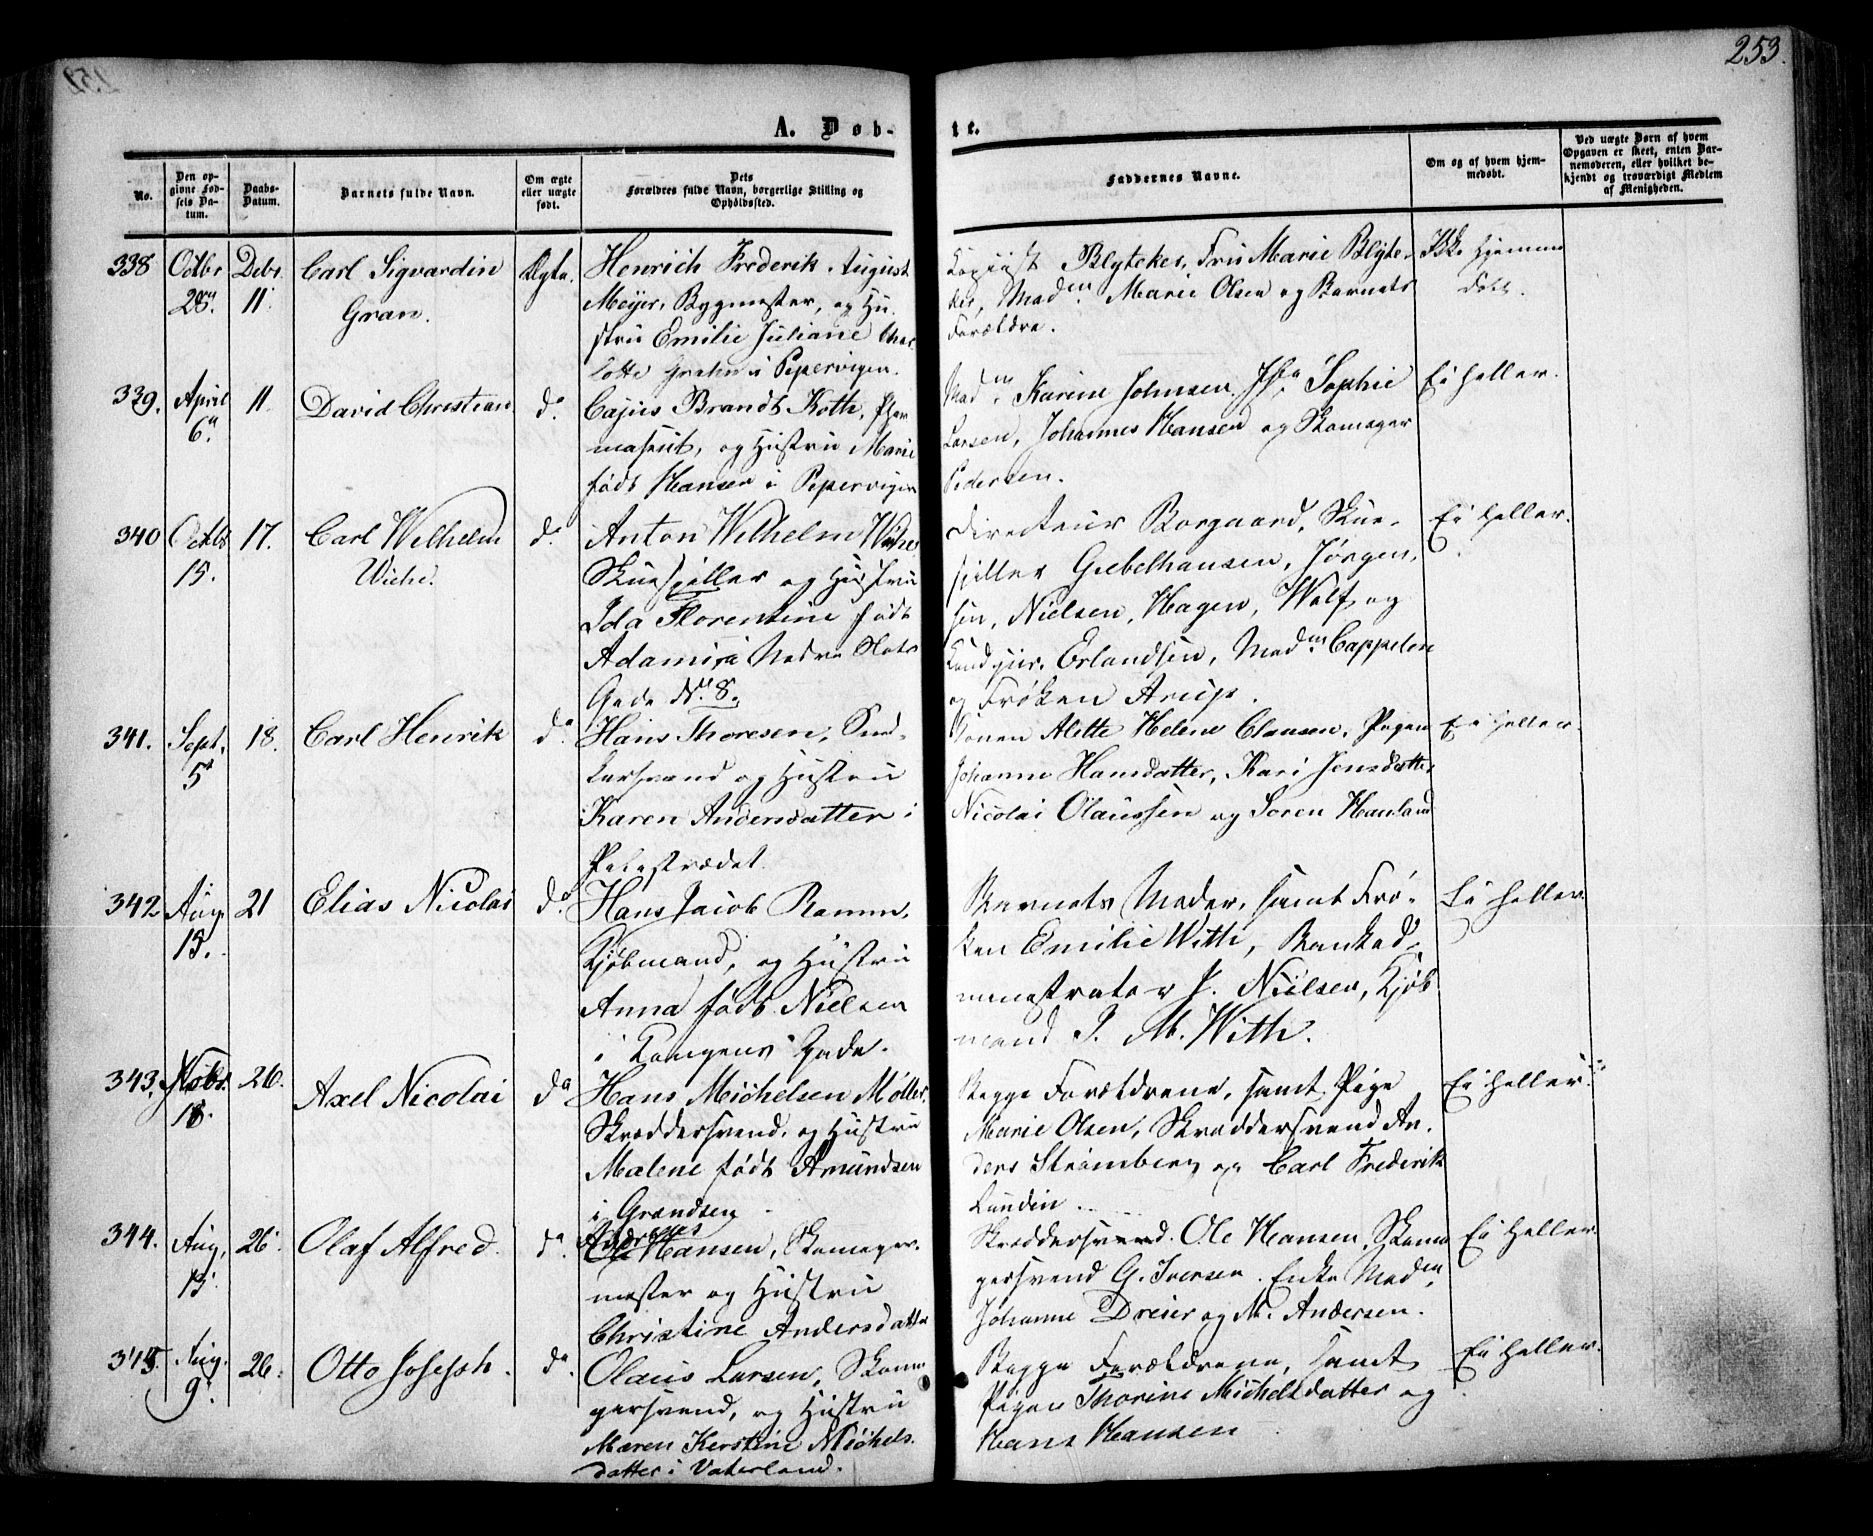 253.
A. Døbte.
No.
Den opgivne Fødsels Datum.
Daabs-Datum.
Barnets fulde Navn.
Om ægte eller uægte født.
Dets Forældres fulde Navn, borgerlige Stilling og Opholdssted.
Faddernes Navne.
Om og af hvem hjemmedøbt.
Ved uægte Børn af hvem Opgaven er skeet, enten Barnemoderen, eller hvilket bekjendt og troværdigt Medlem af Menigheden.
338 Octbr 28 Debr. 11. Carl Sigvardin Gran. Ægte.
Henrich Frederik August
Meyer, Bygmester, og Hu-
stru Emilie Juliane Char-
lotte Grahn i Pipervigen.
Kopiist Blytekes, Fru Marie Blyte-
kes, Madm. Marie Olsen og Barnets
Forældre.
Ikke hjemme
døbt.
339. April 6. 11. David Christian d.
Cajus Brandt Koth, Phar
maseut, og Hustru Marie
født Hansen i Pipervigen
Madm. Karine Johnsen, Jfr. Sophie
Larsen, Johannes Hansen og Skomager
Pedersen.
Ei heller.
340 Octbr 15. 17. Carl Wilhelm Wiehe. d.
Anton Wilhelm Wiehe
Skuespiller og Hustru
Ida Florentine født
Adami i Nedre Slots
Gade No. 8.
Directeur Borgaard, Skue-
spiller Giebelhausen, Jørgen-
sen, Nielsen, Hagen, Wolf, og
Erlandsen, Madm. Cappelen
og Frøken Arup.
Ei heller.
341. Sept. 5 18. Carl Henrik d.
Hans Thoresen, Sned-
kersvend og Hustru
Karen Andersdatter i
Pilestrædet.
Konen Alette Helene Clausen, Pigen
Johanne Hansdatter, Kari Jensdatter
Nicolai Olaussen og Søren Hauland
Ei heller.
342 Aug. 15. 21 Elias Nicolai d.
Hans Jacob Ramm,
Kjøbmand, og Hustru
Anna født Nielsen
i Kongens Gade.
Barnets Moder, samt Frø-
ken Emilie With, Bankad-
ministrator J. Nielsen, Kjøb
mand P. M. With.
Ei heller.
343. Novbr. 18. 26. Axel Nicolai d.
Hans Michelsen Møller,
Skræddersvend, og Hustru
Malene født Amundsen
i Grændsen
Begge Forældrene, samt Pige
Marie Olsen, Skræddersvend An-
ders Strømberg og Carl Frederik
Lundin.
Ei heller.
344. Aug. 13. 26. Olaf Alfred. d.
Andreas
Ole Hansen, Skomager-
mester og Hustru
Christine Andersdatter
Skræddersvend Ole Hansen, Skoma
gersvend G. Iversen. Enke Madm.
Johanne Dreier og M. Andersen.
Ei heller.
345. Aug. 9. 26. Otto Joseph. d.
Olaus Larsen, Skoma
gersvend, og Hustru
Maren Kerstine Michels-
datter i Vaterland.
Begge Forældrene, samt
Pigen Thorine Michelsdatter og
Hans Hansen
Ei heller.